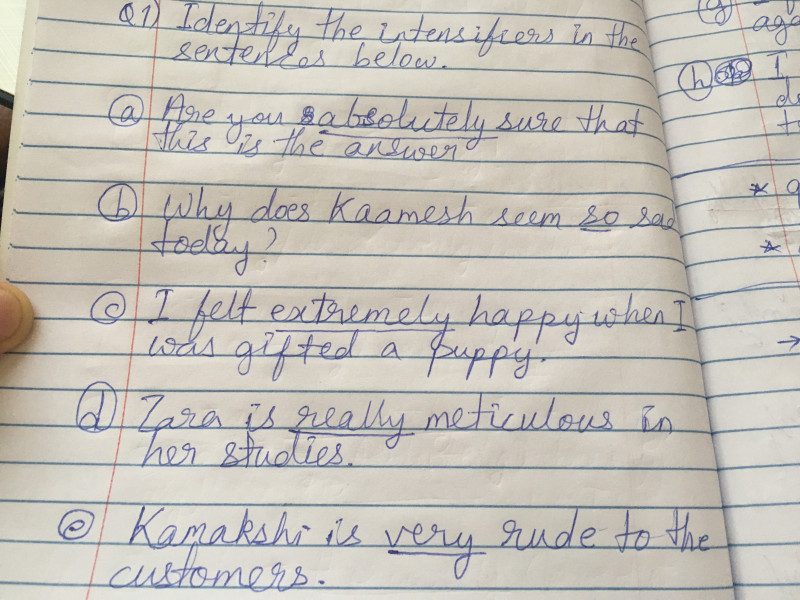 Q1) Identify the intensifiers in the
sentences below.
a Are you absolutely sure that
this is the answer
b Why does Kaamesh seem so sad
today?
c I felt extremely happy when I
was gifted a puppy.
d Zara is really meticulous in
her studies.
e Kamakshi is very rude to the
customers.
g
h I